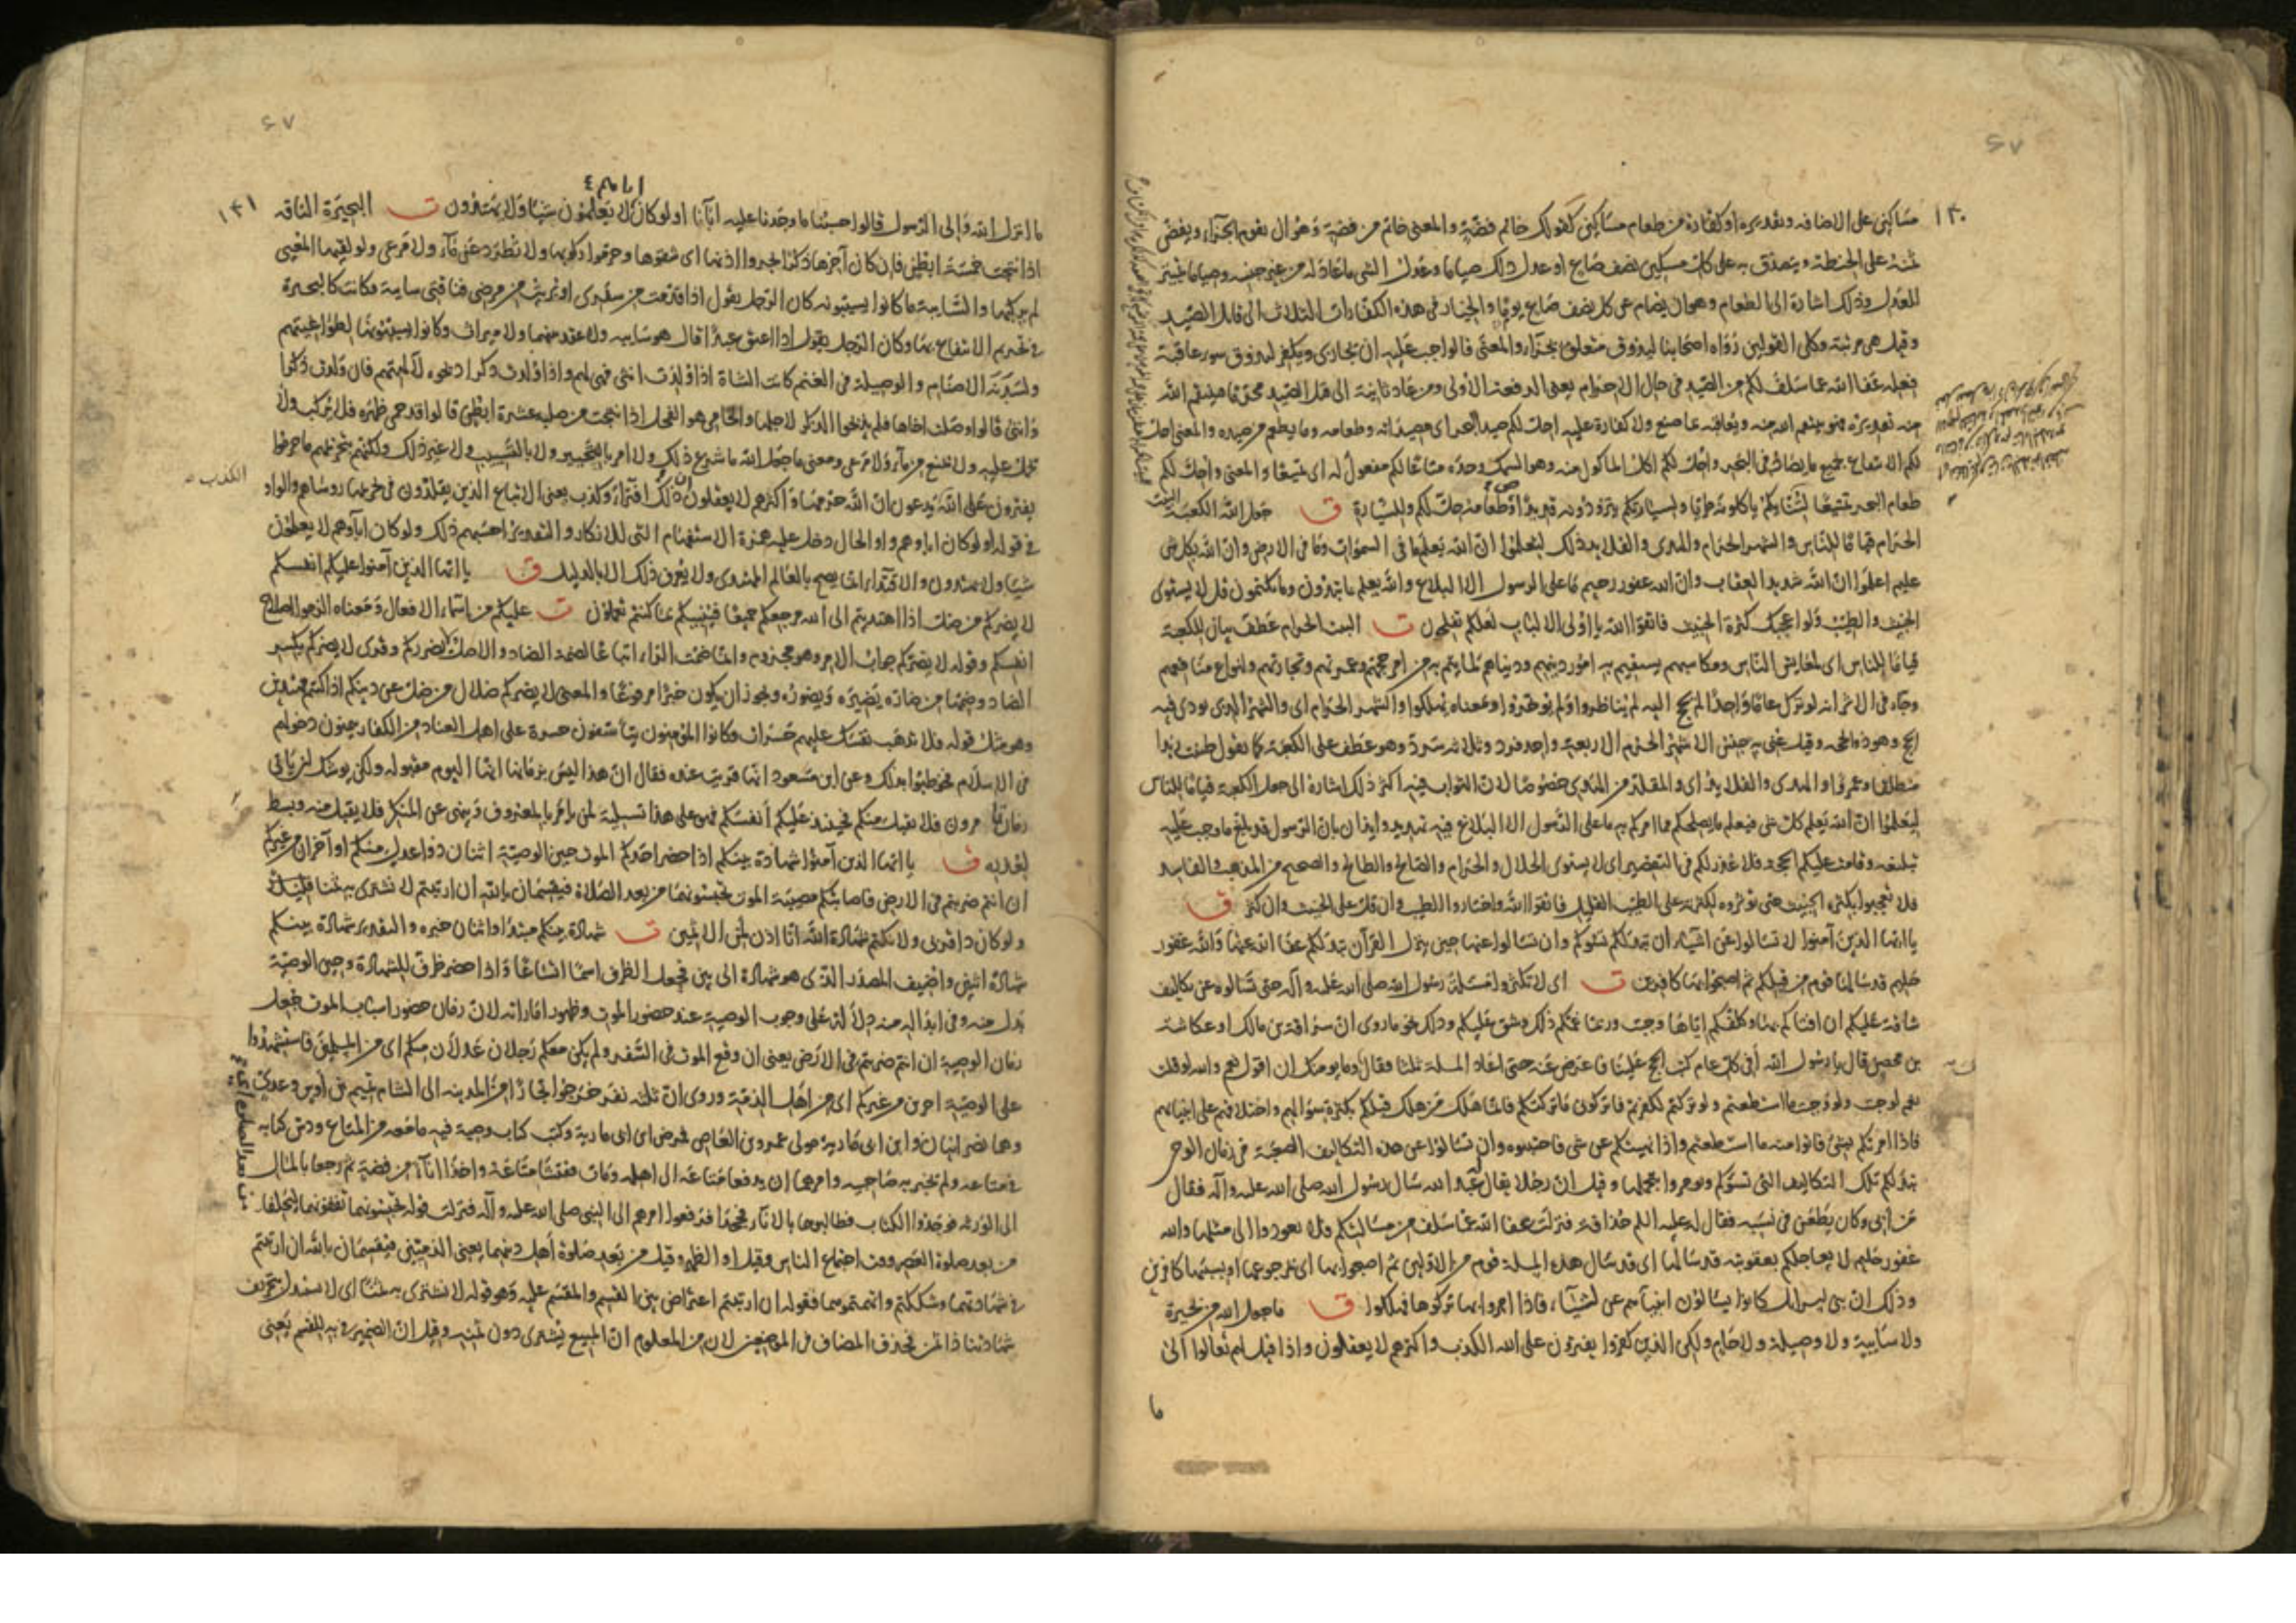 ١٣٠
مساكين على الاضافه وتقديره او كفارة من طعام مساكين كقولك خاتم فضة والمعنى خاتم من فضة وهو ان يقوم الجزاء ويفض
ثمنه على الحنطة ويتصدق به على كل مسكين نصف صاع او عدل ذلك صياما وعدل الشى ما عادله من غير جنسه وصياما تمييز
للعدل وذلك اشارة الى الطعام وهو ان يصام عن كل نصف صاع يوما والخيار فى هذه الكفارات الثلاث الى قاتل الصيد
وقيل هى مرتبة وكلى القولين رواه اصحابنا ليذوق متعلق بجزاء والمعنى فالواجب عليه ان يجازى ويكفر ليذوق سوء عاقبة
فعله عفا الله عما سلف لكم من الصيد فى حال الاحرام يعنى الدفعة الاولى ومن عاد ثانية الى قتل الصيد محرما فينتقم الله
منه تقديره فهو ينتقم الله منه ويعاقبه بما صنع ولا كفارة عليه احل لكم صيد البحر اى مصيداته وطعامه وما يطعم من صيده والمعنى احل
لكم الانتفاع بجميع ما يصاد فى البحر واحل لكم اكل الماكول منه وهو السمك وحده متاعا لكم مفعول له اى تمتيعا والمعنى واحل لكم
طعام البحر تمتيعا لتنائكم ياكلونه طريا ولسيارتكم يتزودونه قديدا منه حل لكم وللسيارة ق جعل الله الكعبة البيت
الحرام قياما للناس والشهر الحرام والهدى والقلايد ذلك لتعلموا ان الله يعلم ما فى السموات وما فى الارض وان الله بكل شى
عليم اعلموا ان الله شديد العقاب وان الله غفور رحيم ما على الرسول الا البلاغ والله يعلم ما تبدون وما تكتمون قل لا يستوى
الخبيث والطيب ولو اعجبك كثرة الخبيث فاتقوا الله يا اولى الالباب لعلكم تفلحون ت البيت الحرام عطف بيان للكعبة
قياما للناس اى لمعايش الناس ومكاسبهم يستقيم به امور دينهم ودنياهم لما يتم به من امر حجهم وعمرتهم وتجارتهم وانواع منافعهم
وجاء فى الاثر انه لو ترك عاما واحدا لم يحج اليه لم يناظروا ولم يؤخروا ومعناه يهلكوا والشهر الحرام اى والشهر الذى يودى فيه
الحج وهو ذو الحجه وقيل عنى به جنس الاشهر الحرم الاربعة واحد فرد وثلاثه سرد وهو عطف على الكعبة كما تقول ظننت زيدا
منطلقا وعمروا والهدى والقلايد اى والمقلد من الهدى خصوصا لان الثواب فيه اكثر ذلك اشارة الى جعل الكعبة قياما للناس
ليعلموا ان الله يعلم كل شى فيعلم ما يصلحكم مما امركم به ما على الرسول الا البلاغ فيه تهديد وايذان بان الرسول قد بلغ ما وجب عليه
تبليغه وقامت عليكم الحجه فلا عذر لكم فى التقصير اى لا يستوى الحلال والحرام والصالح والطالح والصحيح من المذهب والفاسد
فلا تعجبوا بكثرة الخبيث حتى تؤثروه لكثرته على الطيب القليل فاتقوا الله واختاروا الطيب وان قل على الخبيث وان كثر ق
يا ايها الذين آمنوا لا تسالوا عن اشياء ان تبد لكم تسؤكم وان تسالوا عنها حين ينزل القرآن تبد لكم عفا الله عنها والله غفور
حليم قد سالها قوم من قبلكم ثم اصبحوا بها كافرين ت اى لا تكثروا مسئلة رسول الله صلى الله عليه وآله حتى تسالوه عن تكاليف
شاقة عليكم ان افتاكم بها وكلفكم اياها وجبت وربما غمكم ذلك وشق عليكم وذلك نحو ما روى ان سراقة بن مالك او عكاشة
بن محصن قال يا رسول الله أفى كل عام كتب الحج علينا فاعرض عنه حتى اعاد المسلة ثلثا فقال وما يومنك ان اقول نعم والله لو قلت
نعم لوجبت ولو وجبت ما استطعتم ولو تركتم لكفرتم فاتركونى ما تركتكم فانما هلك من هلك قبلكم بكثرة سؤالهم واختلافهم على انبيائهم
فاذا امرتكم بشئ فاتوا منه ما استطعتم واذا نهيتكم عن شى فاجتنبوه وان تسالوا عن هذه التكاليف الصعبة فى زمان الوحى
تبد لكم تلك التكاليف التى تسؤكم وتومروا بتحملها وقيل ان رجلا يقال له عبد الله سال رسول الله صلى الله عليه وآله فقال
من أبى وكان يطعن فى نسبه فقال له عليه السلم حذافة فنزلت عفا الله عما سلف من مسالتكم فلا تعودوا الى مثلها والله
غفور حليم لا يعاجلكم بعقوبته قد سالها اى قد سال هذه المسلة قوم من الاولين ثم اصبحوا بها اى بمرجوعها او بسببها كافرين
وذلك ان بنى اسرائيل كانوا يسالون انبياءهم عن اشياء، فاذا امروا بها تركوها فهلكوا ق ما جعل الله من بحيرة
ولا سايبة ولا وصيلة ولا حام ولكن الذين كفروا يفترون على الله الكذب واكثرهم لا يعقلون واذا قيل لهم تعالوا الى
ما
١٣١
اباءهم
ما انزل الله والى الرسول قالوا حسبنا ما وجدنا عليه اباءنا اولو كان لا يعلمون شيئا ولا يهتدون ت البحيرة الناقه
اذا نتجت خمسة ابطن فان كان آخرها ذكرا بحروا اذنها اى شقوها وحرموا ركوبها ولا تطرد عن ماء ولا مرعى ولو لقيها المعيى
لم يركبها والسايبة ما كانوا يسيبونه كان الرجل يقول اذا قدمت من سفرى او برئت من مرضى فناقتى سايبة وكانت كالبحيرة
فى تحريم الانتفاع بها وكان الرجل يقول اذا اعتق عبدا قال هو سايبه ولا عقد بينهما ولا ميراث وكانوا يسيبونها لطواغيتهم
ولسدنة الاصنام والوصيلة فى الغنم كانت الشاة اذا ولدت انثى فهى لهم واذا ولدت ذكرا ذبحوه لآلهتهم فان ولدت ذكرا
وانثى قالوا وصلت اخاها فلم يذبحوا الذكر لاجلها والحامى هو الفحل اذا نتجت من صلبه عشرة ابطن قالوا قد حمى ظهره فلا يركب ولا
يحمل عليه ولا يمنع من ماء ولا مرعى ومعنى ما جعل الله ما شرع ذلك ولا امر بالتبحير ولا بالتسييب ولا غير ذلك ولكنهم بتحريمهم ما حرموا
الكذب
يفترون على الله يدعون ان الله حرمها واكثرهم لا يعقلون ان ذلك افتراء وكذب يعنى الاتباع الذين يقلدون فى تحريمها روساهم والواو
فى قوله اولو كان اباوهم واو الحال دخل عليه همزة الاستفهام التى للانكار والتقدير احسبهم ذلك ولو كان اباوهم لا يعلمون
شيئا ولا يهتدون والاقتداء انما يصح بالعالم المهتدى ولا يعرف ذلك الا بالدليل ق يا ايها الذين آمنوا عليكم انفسكم
لا يضركم من ضل اذا اهتديتم الى الله مرجعكم جميعا فينبئكم بما كنتم تعملون ت عليكم من اسماء الافعال ومعناه الزموا اصلاح
انفسكم وقوله لا يضركم جواب الامر وهو مجزوم وانما ضمت الراء اتباعا لضمة الضاد والاصل لا يضرركم وقرى لا يضركم بكسر
الضاد وضمها من ضاره يضيره ويضوره ويجوز ان يكون خبرا مرفوعا والمعنى لا يضركم ضلال من ضل عن دينكم اذا كنتم مهتدين
وهو مثل قوله فلا تذهب نفسك عليهم حسرات وكانوا المؤمنون يتأسفون حسرة على اهل العناد من الكفار يتمنون دخولهم
فى الاسلام فخوطبوا بذلك وعن ابن مسعود انها قريت عنده فقال ان هذا ليس بزماننا انها اليوم مقبولة ولكن يوشك ان ياتى
زمان تامرون فلا تقبل منكم فحينئذ عليكم أنفسكم فهى على هذا تسلية لمن يامر بالمعروف وينهى عن المنكر فلا يقبل منه وبسط
لعذره ق يا ايها الذين آمنوا شهادة بينكم اذا حضر احدكم الموت حين الوصية اثنان ذوا عدل منكم او آخران من غيركم
ان انتم ضربتم فى الارض فاصابتكم مصيبة الموت تحبسونهما من بعد الصلاة فيقسمان بالله ان ارتبتم لا نشترى به ثمنا قليلا
ولو كان ذا قربى ولا نكتم شهادة الله انا اذن لمن الآثمين ت شهادة بينكم مبتدا واثنان خبره والتقدير شهادة بينكم
شهادة اثنين واضيف المصدر الذى هو شهادة الى بين فجعل الظرف اسما اتساعا واذا حضر ظرف للشهادة وحين الوصية
بدل منه وفى ابداله منه دلالة على وجوب الوصية عند حضور الموت وظهور اماراته لان زمان حضور اسباب الموت جعل
زمان الوصية ان انتم ضربتم فى الارض يعنى ان وقع الموت فى السفر ولم يكن معكم رجلان عدلان منكم اى من المسلمين فاستشهدوا
على الوصية اخرين من غيركم اى من اهل الذمة وروى ان ثلثه نفر خرجوا تجارا من المدينه الى الشام تميم بن أوس وعدى
وهما نصرانيان وابن ابى مارية مولى عمرو بن العاص فمرض ابن ابى مارية وكتب كتاب وصية فيه ما معه من المتاع ودس كتابه
فى متاعه ولم يخبر به صاحبيه وامرهما ان يدفعا متاعه الى اهله ومات ففتشا متاعه واخذا اناء من فضة ثم رجعا بالمال
الى الورثه فوجدوا الكتاب فطالبوهما بالاناء فجحدا فرفعوا امرهم الى النبى صلى الله عليه وآله فنزلت قوله تحبسونهما تقفونهما ليحلفا
من بعد صلوة العصر وقت اجتماع الناس وقيل او الظهر وقيل من بعد صلوة أهل دينهما يعنى الذميين فيقسمان بالله ان ارتبتم
فى شهادتهما وشككتم واتهمتموهما فقوله ان ارتبتم اعتراض بين القسم والمقسم عليه وهو قوله لا نشترى به ثمنا اى لا نستبدل بتحريف
شهادتنا ذا ثمن فحذف المضاف فى الموضعين لان من المعلوم ان المبيع يشترى دون ثمنه وقيل ان الضمير فى به للقسم يعنى